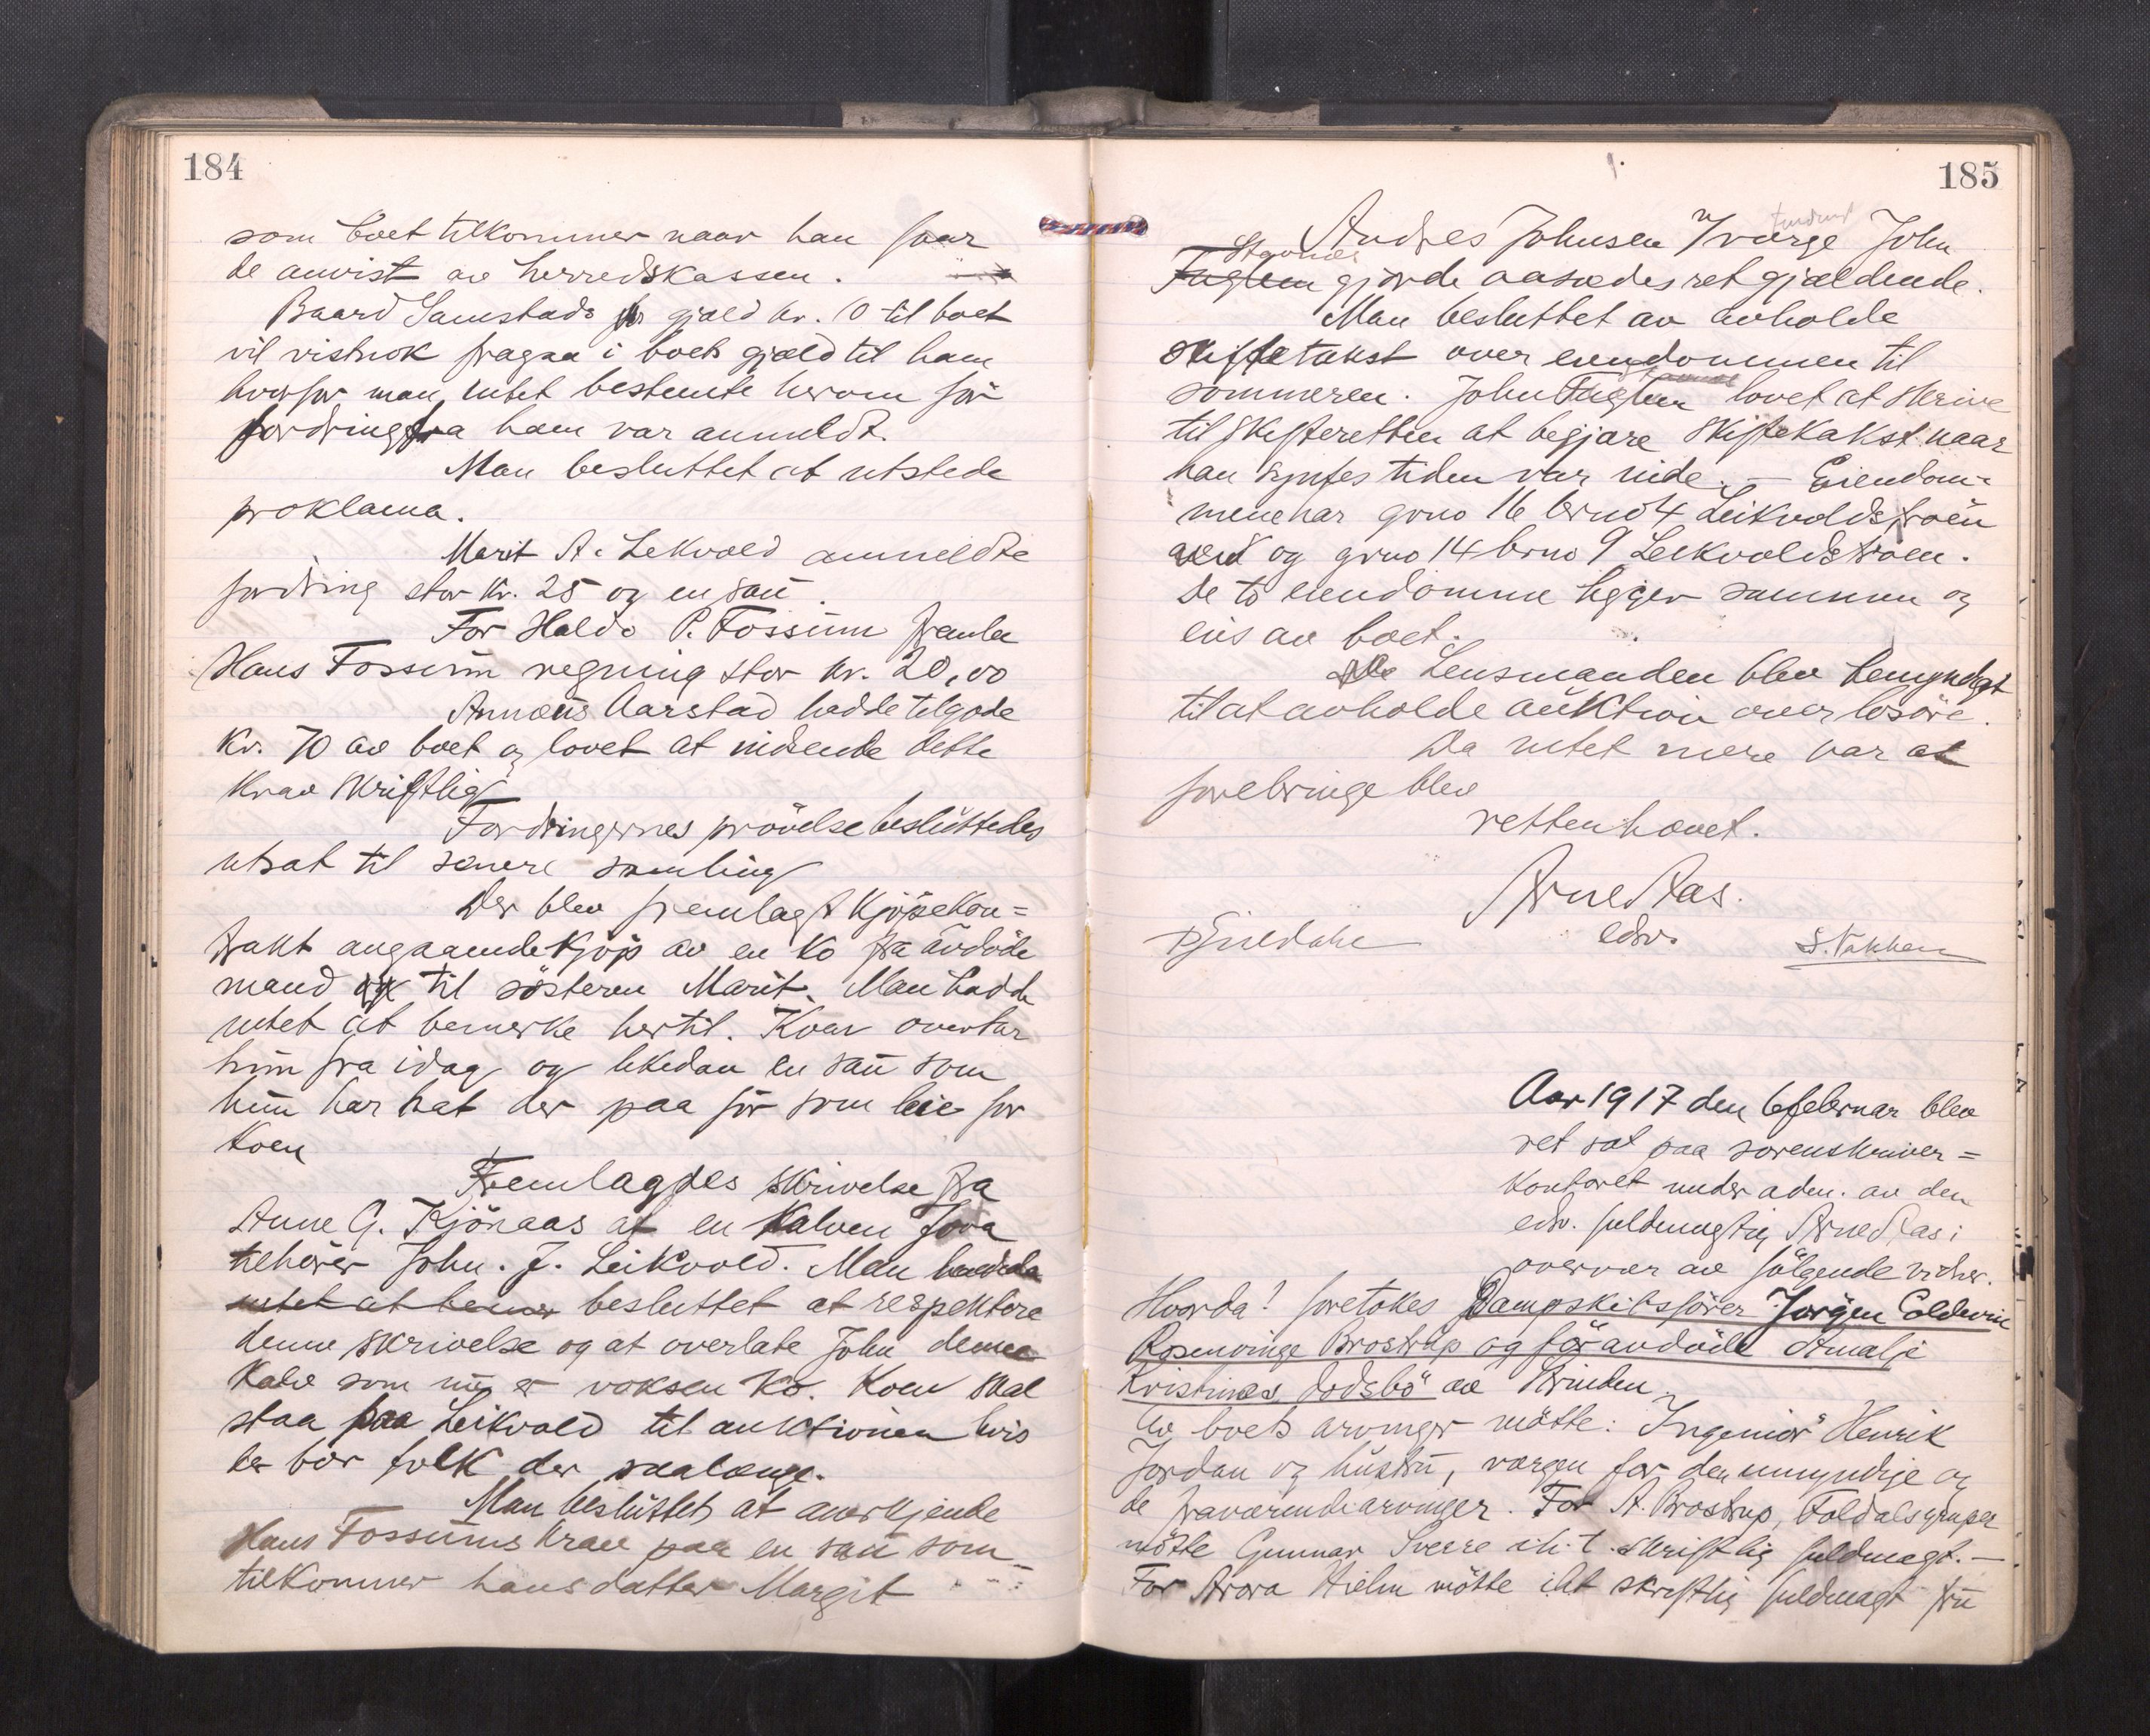 184
som boet tilkommer naar han faar
de anvist av herredskassen.
Baard Samstads gjæld kr. 0 til boet
vil vistnok fragaa i boets gjæld til ham
hvorfor man intet bestemte herom før
fordring fra ham var anmeldt.
Man besluttet at utstede
proklama.
Marit A. Lekvold anmeldte
fordring stor kr. 25 og en sau.
For Haldo P. Fossum
Hans Fossum regning stor kr. 20,00
Annæus Aarstad hadde tilgode
Kr. 70 av boet og lovet at indsende dette
krav skriftlig
Fordringernes prövelse besluttedes
utsat til senere samling
Der blev fremlagt Kjöpekon=
trakt angaaende kjöp av en ko fra avdöde
mand til sösteren Marit. Man hadde
intet at bemerke hertil. Koen overtar
hun fra idag og likedan en sau som
hun har hat der paa för som leie for
Koen
Fremlagdes skrivelse fra
Anne G. Kjönaas at en Kalven
tilhörer John. J. Leikvold. Man
intet at besluttet at respektere
denne skrivelse og at overlate John denne
Kalv som nu er voksen Ko. Koen skal
staa paa Leikvold til auktionen hvis
der bor folk der saalænge.
Man besluttet at anerkjende
Hans Fossums krav paa en sau som
tilkommer hans datter Margit
185
Andres Johnsen v/ værge John
Fuglem gjorde aasædesret gjældende.
Man besluttet av avholde
skiftetakst over eiendommen til
sommeren. John Fuglem lovet at skrive
til skifteretten at begjære skiftetakst naar
han syntes tiden var inde. — Eiendom=
mene har grno 16 brno 4 Leikvoldstrøen
og grno 14 brno 9 Leikvoldstrøen.
De to eiendomme ligger sammen og
eies av boet.
Lensmanden blev bemyndiget
til at avholde auktion over lösöre.
Da intet mere var at
forebringe blev
retten hævet.
Arne Aas.
edsv.
Aar 1917 den 6 februar blev
ret sat paa sorenskriver=
kontoret under adm. av den
edsv. fuldmægtig Arne Aas i
overvær av fölgende vidner.
Hvorda! foretokes Dampskibsförer Jørgen Eddevin
Rosenvinge Brostrup og før avdöde Amalie
Kristines dødsbo av Strinden.
Av boets arvinger mötte: Ingeniör Henrik
Jordan og hustru, værgen for den umyndige og
de fraværende arvinger. For A. Brostrup, Foldals gruper
mötte Gunnar Sverre ih.t. skriftlig fuldmagt. —
For Hielm mötte iht skriftlig fuldmagt fru